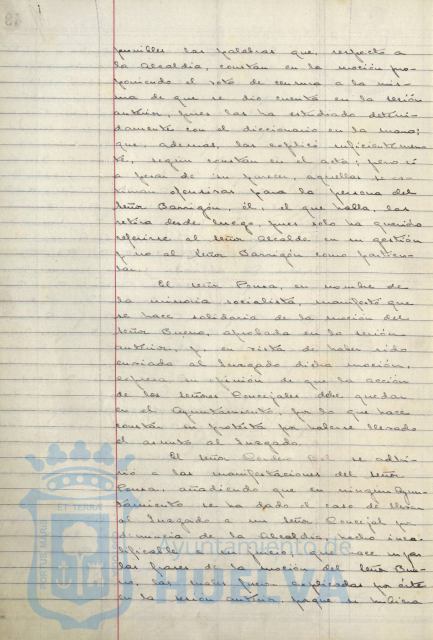 punibles las palabras que, respecto a
la Alcaldía, constan en la moción pro-
poniendo el voto de censura a la mis-
ma de que se dio cuenta en la sesión
anterior, pues las ha estudiado deteni-
damente con el diccionario en la mano;
que, ademas, las explicó suficientemen-
te, según constan en el acta; pero si
a pesar de su parecer, aquellas se es-
timan ofensivas para la persona del
Señor Barrigón, él, el que habla, las
retira desde luego, pues solo ha querido
referirse al Señor Alcalde en su gestión
y no al Señor Barrigón como particu-
lar.
El Señor Ponsa, en nombre de
la minoría socialista, manifestó que
se hace solidaria de la moción del
Señor Bueno, aprobada en la sesión
anterior, y, en vista de haber sido
enviado al Juzgado dicha moción,
expresa su opinión de que la acción
de los Señores Concejales debe quedar
en el Ayuntamiento, por lo que hace
constar su protesta por haberse llevado
el asunto al Juzgado.
El Señor Cordero se adhi-
rió a las manifestaciones del Señor
Ponsa, añadiendo que en ningún Ayun-
tamiento se ha dado el caso de llevar
al Juzgado a un Señor Concejal por
denuncia de la Alcaldía, hecho inca-
lificable hace suyas
las frases de la moción del Señor Bue-
no, las cuales fueron explicadas por éste
en la sesión anterior, porque se hubiera
PORTUS MARIS
ET TERRA
Ayuntamiento de
HUELVA